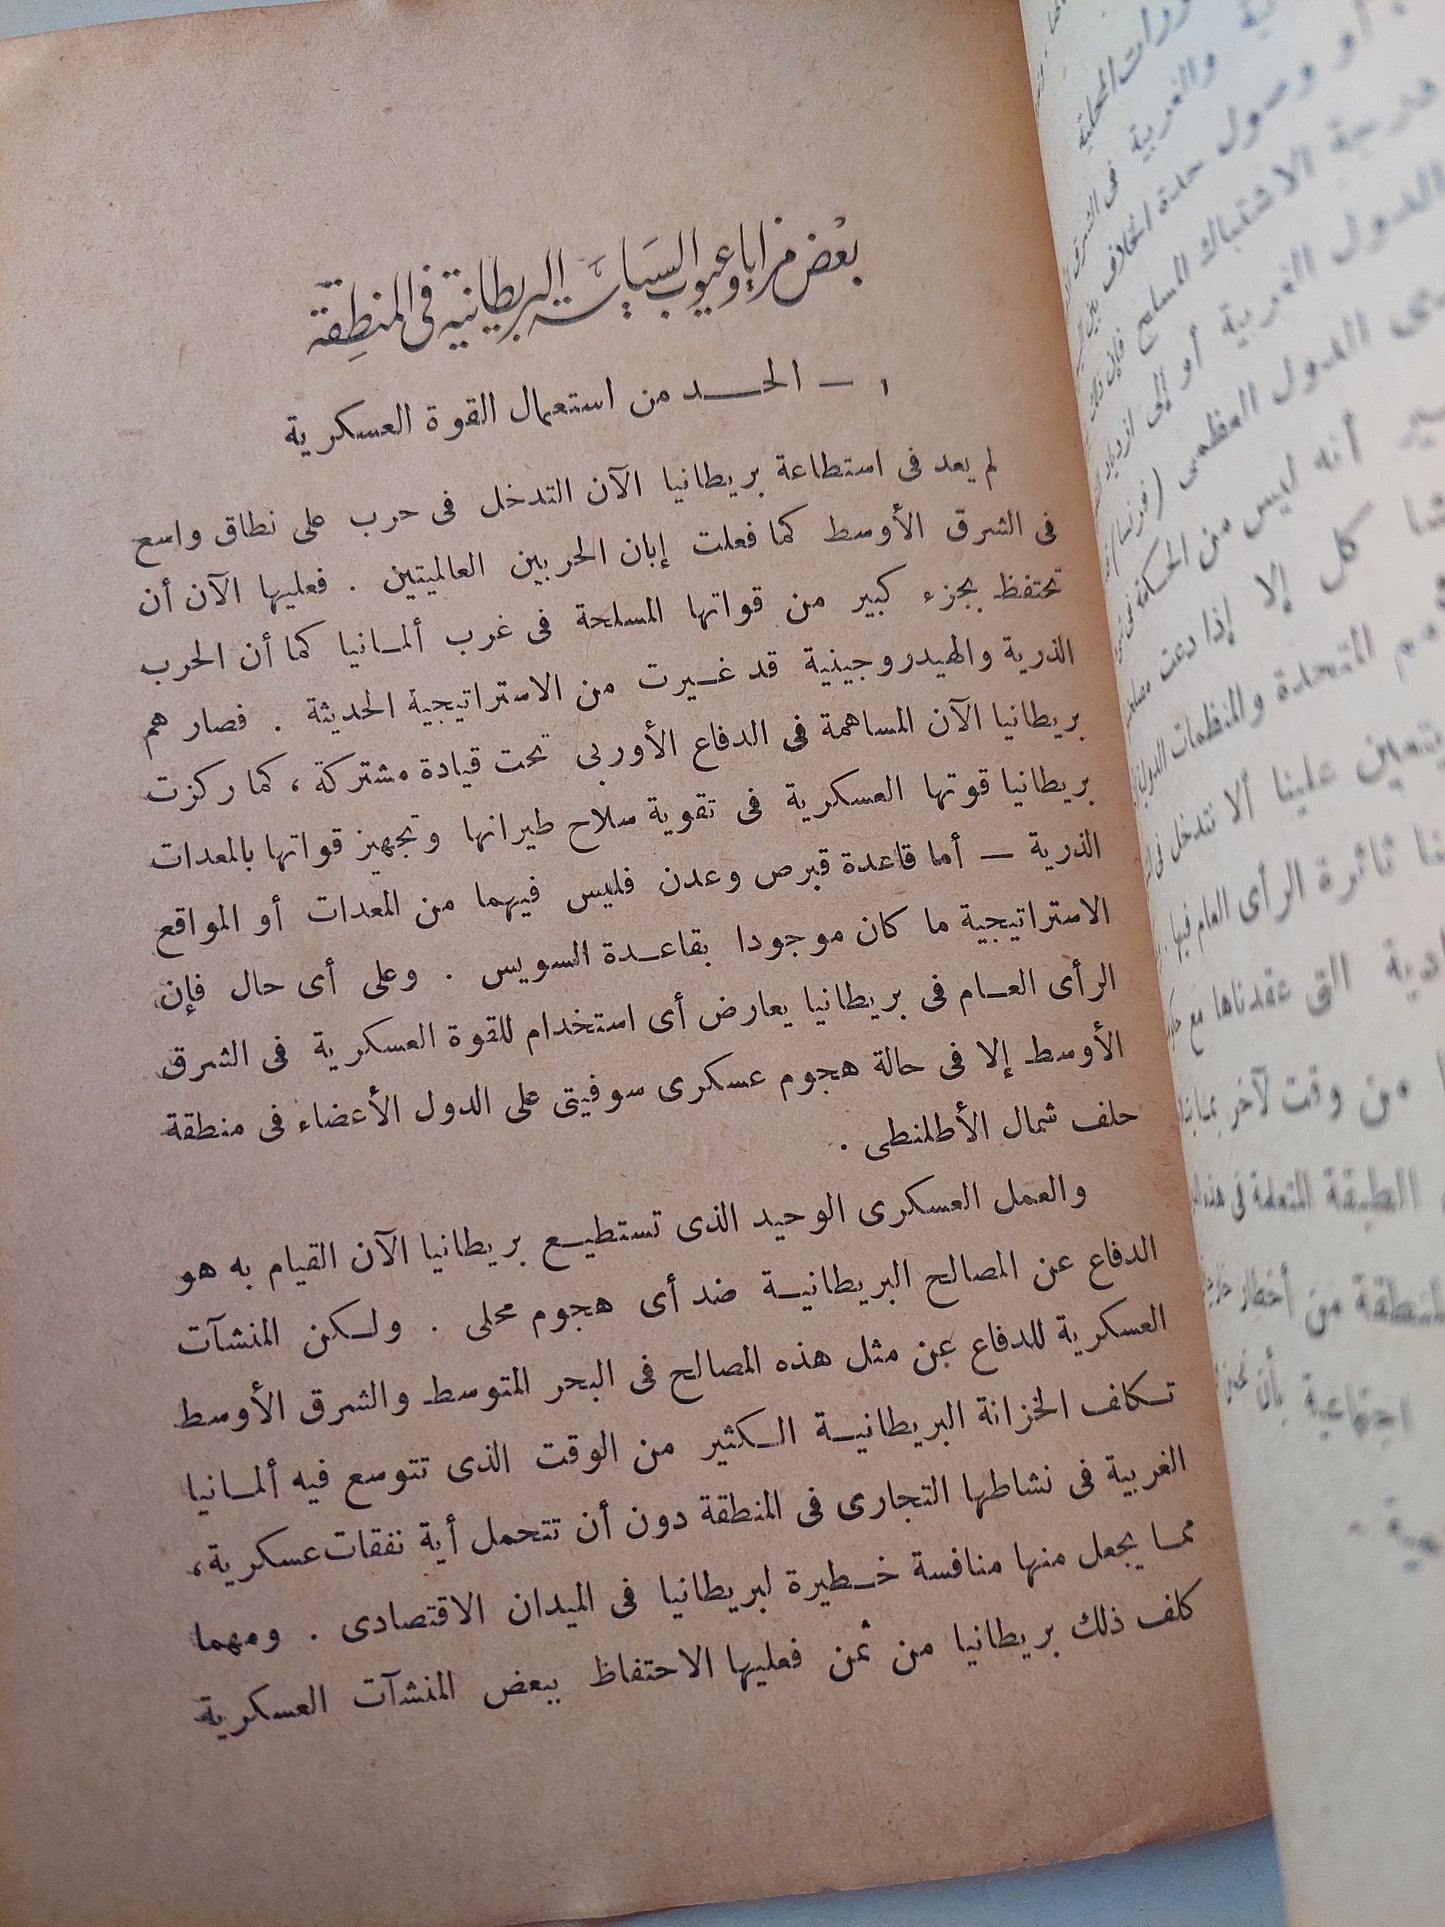 بعض مزايا وعيوب السياسة البريطانية فى المنطقة
١ — الحـــد من استعمال القوة العسكرية
لم يعد فى استطاعة بريطانيا الآن التدخل فى حرب على نطاق واسع
فى الشرق الأوسط كما فعلت إبان الحربين العالميتين . فعليها الآن أن
تحتفظ بجزء كبير من قواتها المسلحة فى غرب ألمـانيا كما أن الحرب
الذرية والهيدروجينية قد غـيرت من الاستراتيجية الحديثة . فصار هم
بريطانيا الآن المساهمة فى الدفاع الأوربى تحت قيادة مشتركة ، كما ركزت
بريطانيا قوتها العسكرية فى تقوية سلاح طيرانها وتجهيز قواتها بالمعدات
الذرية — أما قاعدة قبرص وعدن فليس فيهما من المعدات أو المواقع
الاستراتيجية ما كان موجودا بقاعـدة السويس . وعلى أى حال فإن
الرأى العـام فى بريطانيا يعارض أى استخدام للقوة العسكرية فى الشرق
الأوسط إلا فى حالة هجوم عسكرى سوفيتى على الدول الأعضاء فى منطقة
حلف شمال الأطلنطى .
والعمل العسكرى الوحيد الذى تستطيـع بريطانيا الآن القيام به هو
الدفاع عن المصالح البريطانيـة ضد أى هجوم محلى . ولـكن المنشآت
العسكرية للدفاع عن مثل هذه المصالح فى البحر المتوسط والشرق الأوسط
تـكلف الخزانة البريطانيـة الـكثير من الوقت الذى تتوسع فيه ألمـانيا
الغربية فى نشاطها التجارى فى المنطقة دون أن تتحمل أية نفقات عسكرية،
ممـا يجعل منها منافسة خـطيرة لبريطانيا فى الميدان الاقتصادى . ومهما
كلف ذلك بريطانيا من ثمن فعليها الاحتفاظ ببعض المنشآت العسكرية
والغربية فى الشرق
أو وصول حدة الخلاف بين
درجة الاشتباك المسلح فإن ذلك
الدول الغربية أو إلى ازدياد
الدول العظمى
أنه ليس من الحكمة فى
كل إلا إذا دعت
المتحدة والمنظمات الدولية
يتعين علينا ألا نتدخل فى
ثائرة الرأى العام فيها
التى عقدناها مع
من وقت لآخر
الطبقة المتعلمة فى هذه
المنطقة من أخطار
اجتماعية بأن